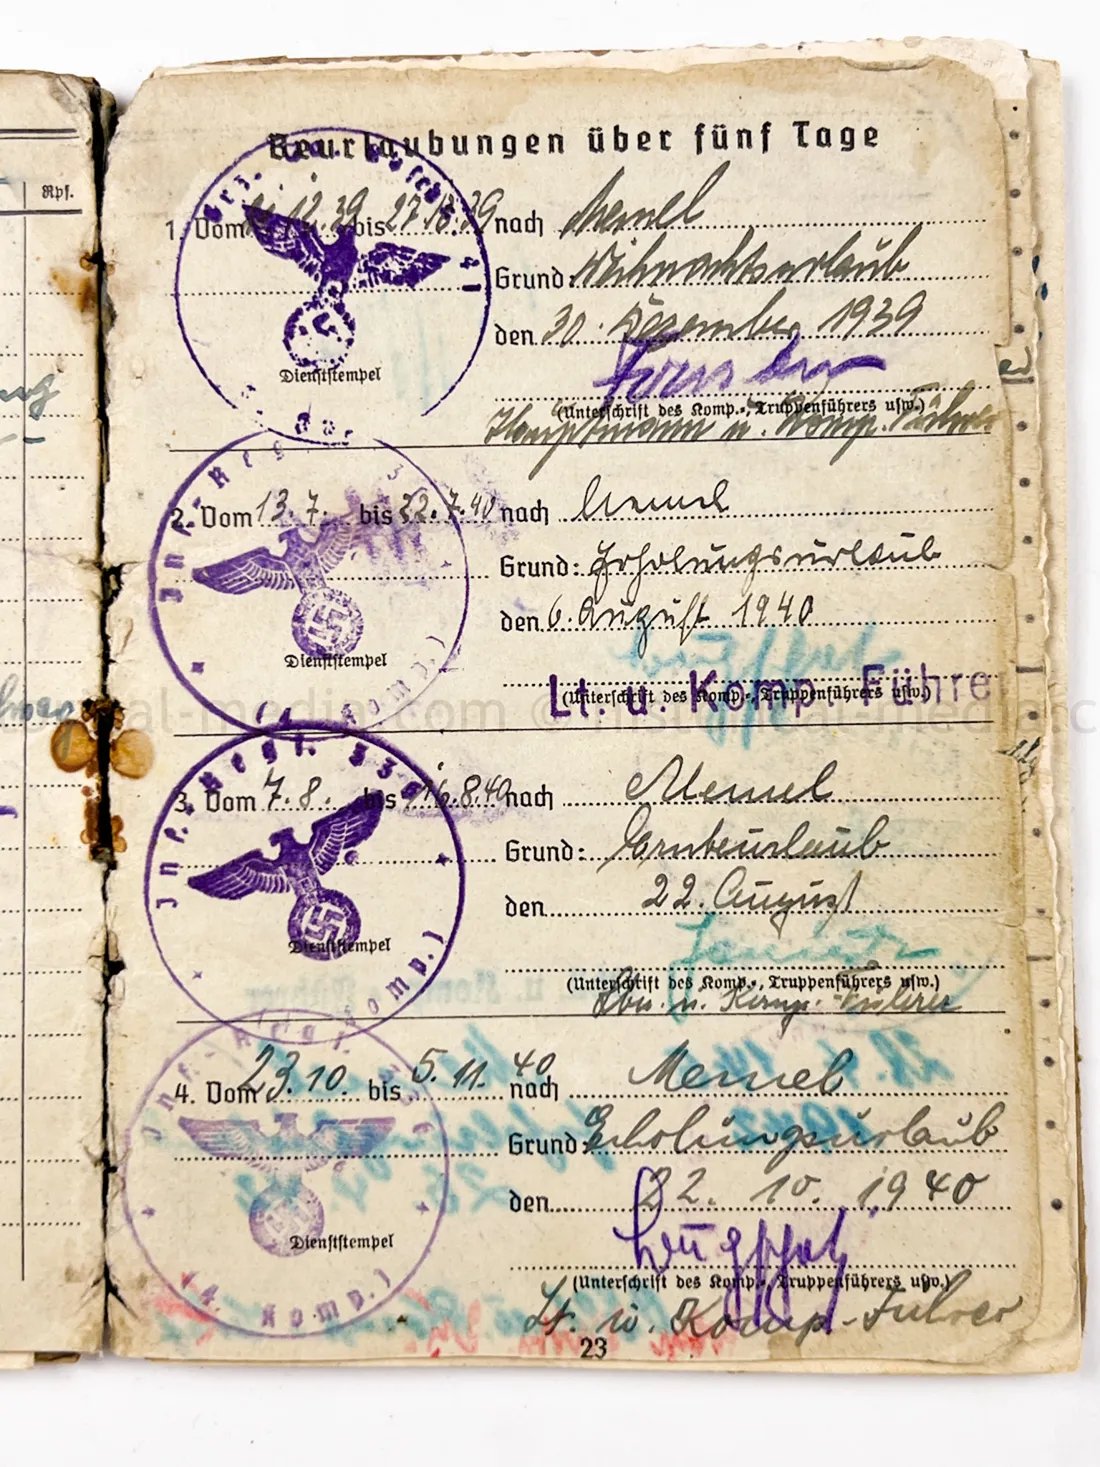 Rpf.
Beurlaubungen über fünf Tage
1. Vom 12.39 bis 27.12.39 nach Memel
Grund: Weihnachtsurlaub
den 30. Dezember 1939
Dienststempel
(Unterschrift des Komp.-, Truppenführers usw.)
Hauptmann u. Komp. Führer
Inf. Regt.
2. Vom 13.7. bis 22.7.40 nach Memel
Grund: Erholungsurlaub
den 6. August 1940
Dienststempel
Lt. u. Komp. Führe
(Unterschrift des Komp.-, Truppenführers usw.)
Komp.)
Inf. Regt.
3. Vom 7.8. bis 16.8.40 nach Memel
Grund: Ernteurlaub
den 22. August
Dienststempel
(Unterschrift des Komp.-, Truppenführers usw.)
u. Komp.-Führer
Komp.)
4. Vom 23.10. bis 5.11.40 nach Memel
Grund: Erholungsurlaub
den 22. 10. 1940
Dienststempel
(Unterschrift des Komp.-, Truppenführers usw.)
4. Komp.)
Lt. u. Komp.-Führer
23